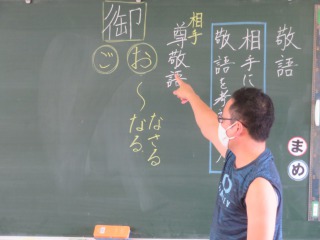 敬語
相手に
敬語を考
相手
尊敬語
御
お
ご
〜なさる
なる
まめ